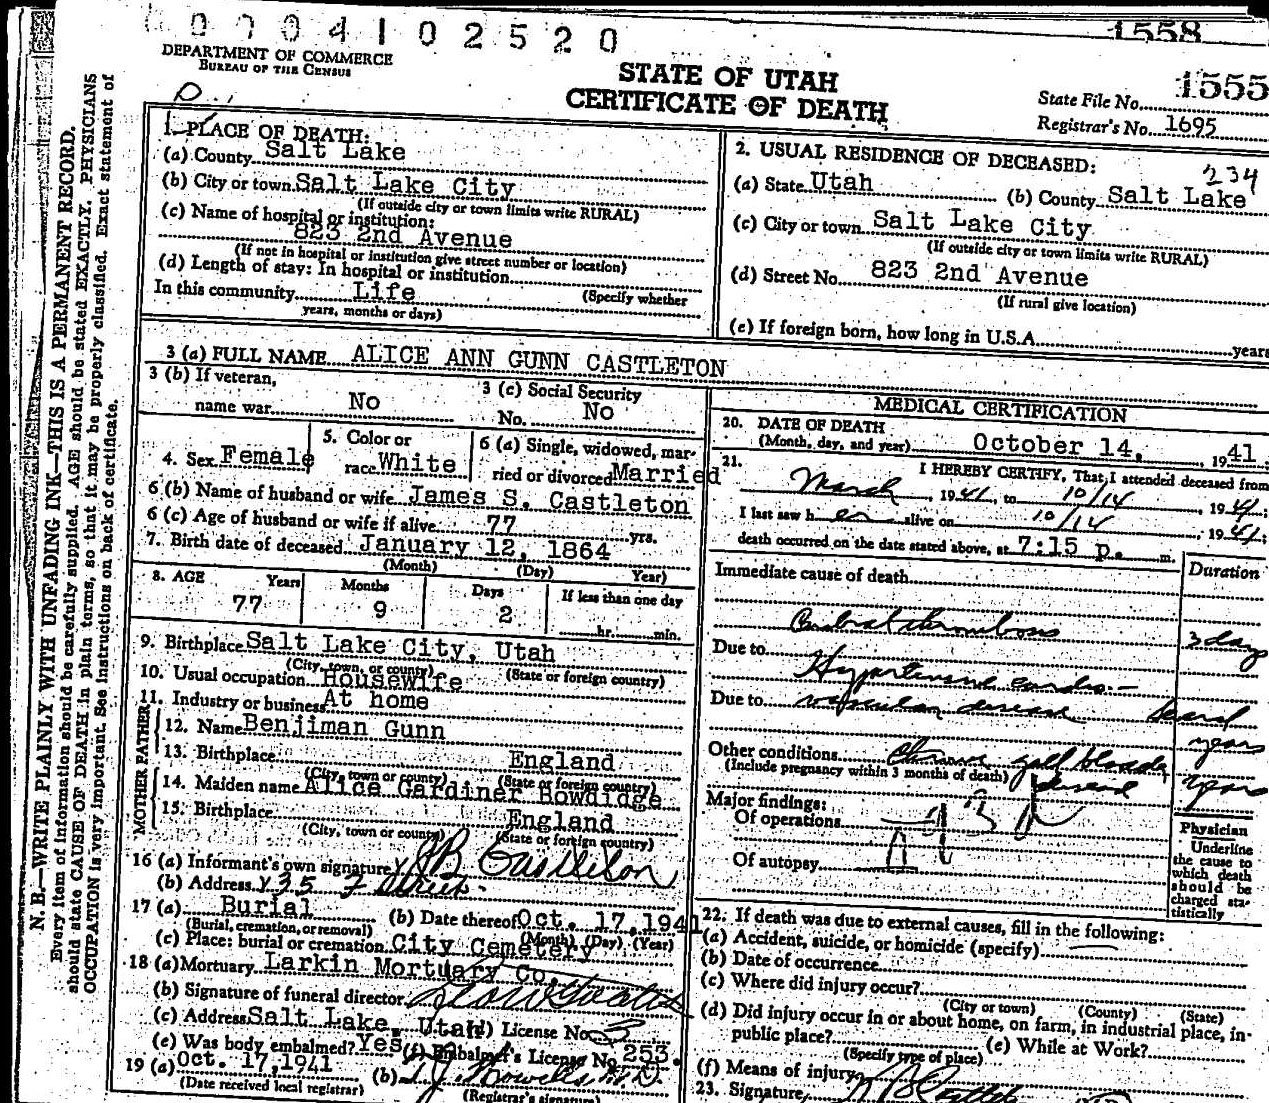 0004102520
1558
DEPARTMENT OF COMMERCE
BUREAU OF THE CENSUS
STATE OF UTAH
CERTIFICATE OF DEATH
State File No. 1555
Registrar's No. 1695
N. B.—WRITE PLAINLY WITH UNFADING INK—THIS IS A PERMANENT RECORD.
Every item of information should be carefully supplied. AGE should be stated EXACTLY. PHYSICIANS
should state CAUSE OF DEATH in plain terms, so that it may be properly classified. Exact statement of
OCCUPATION is very important. See instructions on back of certificate.
1. PLACE OF DEATH:
(a) County Salt Lake
(b) City or town Salt Lake City
(If outside city or town limits write RURAL)
(c) Name of hospital or institution:
823 2nd Avenue
(If not in hospital or institution give street number or location)
(d) Length of stay: In hospital or institution
In this community Life (Specify whether
years, months or days)
2. USUAL RESIDENCE OF DECEASED:
234
(a) State Utah (b) County Salt Lake
(c) City or town Salt Lake City
(If outside city or town limits write RURAL)
(d) Street No. 823 2nd Avenue
(If rural give location)
(e) If foreign born, how long in U.S.A. years
3 (a) FULL NAME ALICE ANN GUNN CASTLETON
3 (b) If veteran,
name war No
3 (c) Social Security
No. No
4. Sex Female
5. Color or
race White
6 (a) Single, widowed, mar-
ried or divorced Married
6 (b) Name of husband or wife James S. Castleton
6 (c) Age of husband or wife if alive 77 yrs.
7. Birth date of deceased January 12, 1864
(Month) (Day) Year)
8. AGE Years Months Days If less than one day
77 9 2 hr. min.
9. Birthplace Salt Lake City, Utah
(City, town, or county) (State or foreign country)
10. Usual occupation Housewife
11. Industry or business At home
FATHER
12. Name Benjiman Gunn
13. Birthplace England
(City, town or county) (State or foreign country)
MOTHER
14. Maiden name Alice Gardiner Bowdidge
15. Birthplace England
(City, town or county) (State or foreign country)
16 (a) Informant's own signature JB Castleton
(b) Address 35 F Street
17 (a) Burial (b) Date thereof Oct. 17, 1941
(Burial, cremation, or removal) (Month) (Day) (Year)
(c) Place: burial or cremation City Cemetery
18 (a) Mortuary Larkin Mortuary Co.
(b) Signature of funeral director
(c) Address Salt Lake, Utah (d) License No. 3
(e) Was body embalmed? Yes (f) Embalmer's License No 253.
19 (a) Oct. 17, 1941 (b)
(Date received local registrar) (Registrar's signature)
MEDICAL CERTIFICATION
20. DATE OF DEATH
(Month, day, and year) October 14, 1941;
21. I HEREBY CERTIFY, That I attended deceased from
March, 1941, to 10/14, 1941;
I last saw her alive on 10/14, 1941;
death occurred on the date stated above, at 7:15 p. m.
Duration
Immediate cause of death
Cerebral thrombosis 3 days
Due to Hypertensive cardio-
Due to vascular disease several
years
Other conditions Chronic gall bladder
(Include pregnancy within 3 months of death) disease years
Major findings:
Of operations
Of autopsy
Physician
Underline
the cause to
which death
should be
charged sta-
tistically
22. If death was due to external causes, fill in the following:
(a) Accident, suicide, or homicide (specify)
(b) Date of occurrence
(c) Where did injury occur?
(City or town) (County) (State)
(d) Did injury occur in or about home, on farm, in industrial place, in-
public place? (e) While at Work?
(Specify type of place)
(f) Means of injury
23. Signature